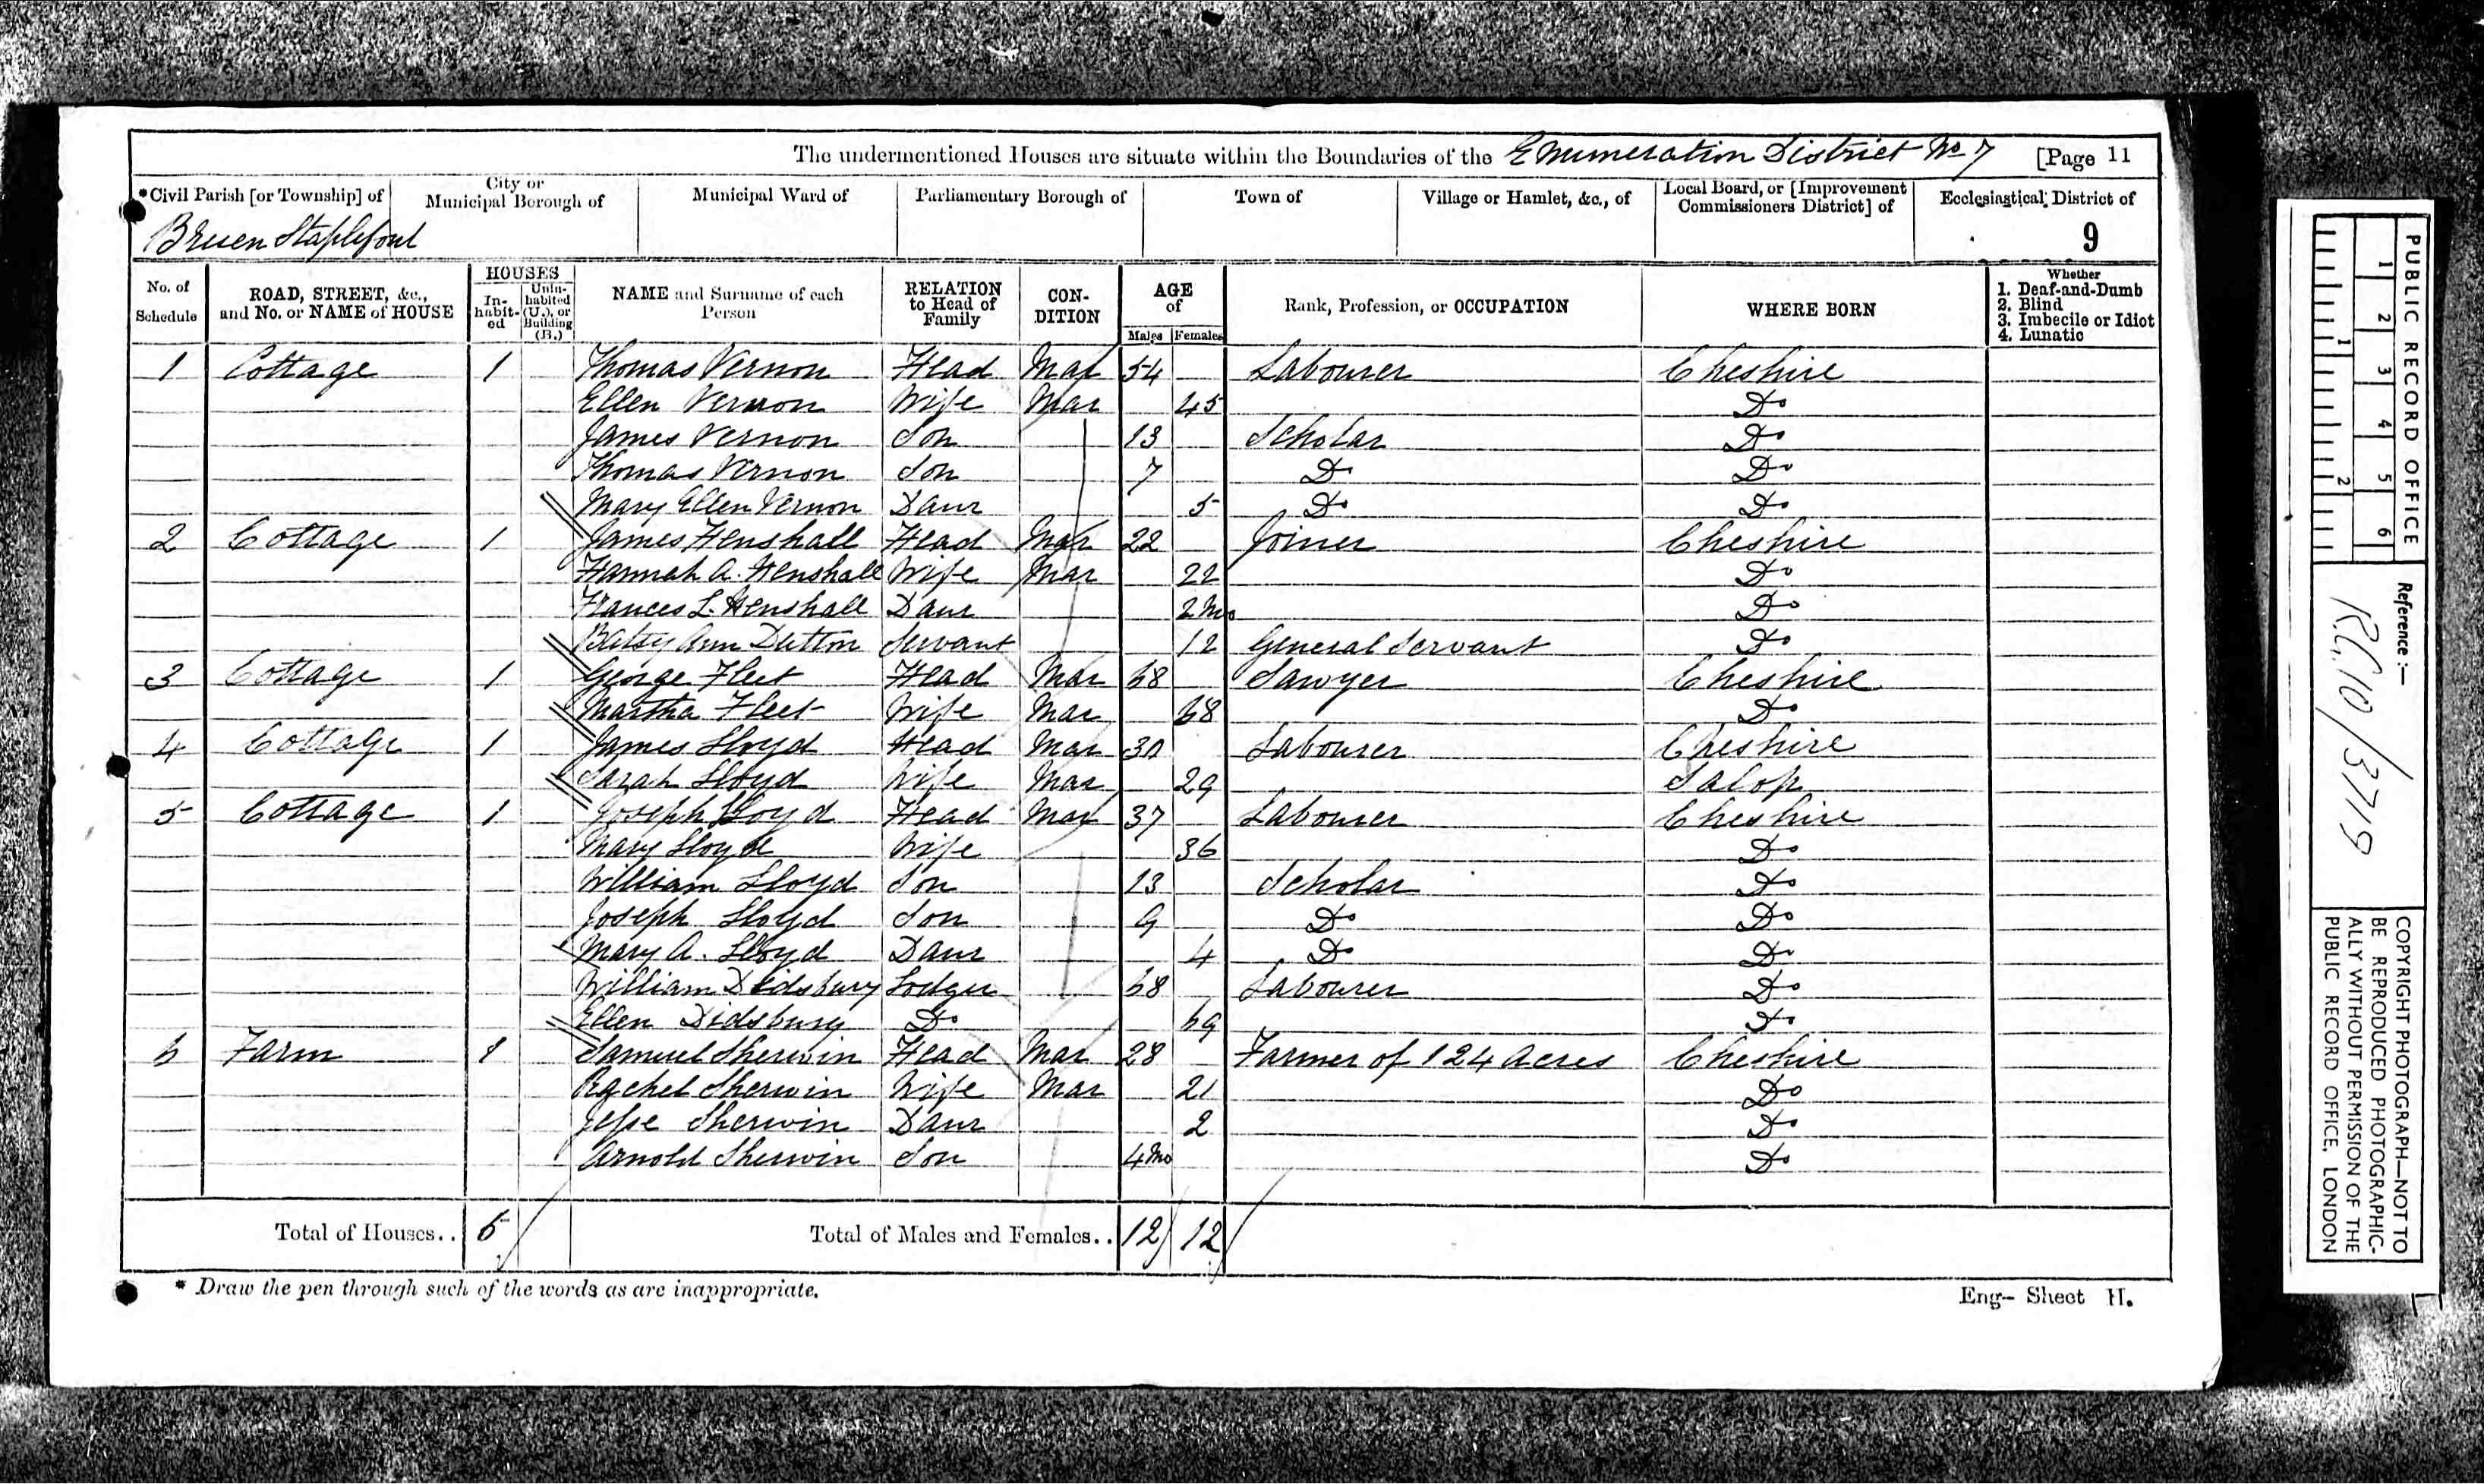 The undermentioned Houses are situate within the Boundaries of the Enumeration District No 7 [Page 11
*Civil Parish [or Township] of City or Municipal Borough of Municipal Ward of Parliamentary Borough of Town of Village or Hamlet, &c., of Local Board, or [Improvement Commissioners District] of Ecclesiastical District of
Bruen Stapleford 9
No. of Schedule ROAD, STREET, &c., and No. or NAME of HOUSE HOUSES Inhabited Uninhabited (U.), or Building (B.) NAME and Surname of each Person RELATION to Head of Family CONDITION AGE of Males Females Rank, Profession, or OCCUPATION WHERE BORN Whether 1. Deaf-and-Dumb 2. Blind 3. Imbecile or Idiot 4. Lunatic
1 Cottage 1 Thomas Vernon Head Mar 54 Labourer Cheshire
Ellen Vernon Wife Mar 45 Do
James Vernon Son 13 Scholar Do
Thomas Vernon Son 7 Do Do
Mary Ellen Vernon Daur 5 Do Do
2 Cottage 1 James Henshall Head Mar 22 Joiner Cheshire
Hannah A. Henshall Wife Mar 22 Do
Frances L. Henshall Daur 2 Mo Do
Betsy Ann Dutton Servant 12 General Servant Do
3 Cottage 1 George Fleet Head Mar 68 Sawyer Cheshire
Martha Fleet Wife Mar 68 Do
4 Cottage 1 James Lloyd Head Mar 30 Labourer Cheshire
Sarah Lloyd Wife Mar 29 Salop
5 Cottage 1 Joseph Lloyd Head Mar 37 Labourer Cheshire
Mary Lloyd Wife 36 Do
William Lloyd Son 13 Scholar Do
Joseph Lloyd Son 9 Do Do
Mary A. Lloyd Daur 4 Do Do
William Didsbury Lodger 68 Labourer Do
Ellen Didsbury Do 69 Do
6 Farm 1 Samuel Sherwin Head Mar 28 Farmer of 124 Acres Cheshire
Rachel Sherwin Wife Mar 21 Do
Jesse Sherwin Daur 2 Do
Arnold Sherwin Son 4 Mo Do
Total of Houses.. 6 Total of Males and Females.. 12 12
* Draw the pen through such of the words as are inappropriate.
Eng- Sheet H.
PUBLIC RECORD OFFICE
1 2 3 4 5 6
1 2
Reference :-
RG 10/3719
COPYRIGHT PHOTOGRAPH—NOT TO
BE REPRODUCED PHOTOGRAPHIC-
ALLY WITHOUT PERMISSION OF THE
PUBLIC RECORD OFFICE, LONDON